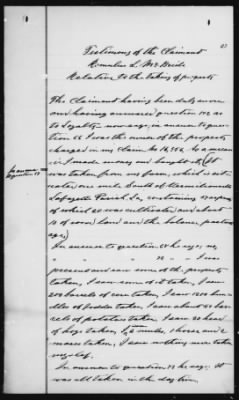 Testimony of the Claimant
Romulus L. McBride
Relation to the taking of property
The Claimant having been duly sworn
and having answered question 1 to as
to Loyalty now says, in answer to ques-
tion 66 I was the owner of the property
charged in my claim No 16,956 As a mean
in I made money and bought it, (It
In answer
to question
was taken from my farm, which is situ-
ated one mile South of Vermilionville
Lafayette Parish La, containing
of which 80 was cultivated and about
15 of wood land and the balance pastur
age,)
In answer to question 69 he says, no,
" " " " 70 " I was
present and saw some of the property
taken, I saw some of it taken, I saw
200 barrels of corn taken, I saw 1200 bun
dles of fodder taken, I saw about 50 bar-
rels of potatoes taken, I saw 20 head
of hogs taken, 2 mules, 1 horse, and 2
mares taken, I saw nothing more taken
myself.
In answer to question 72 he says: It
was all taken in the day time,